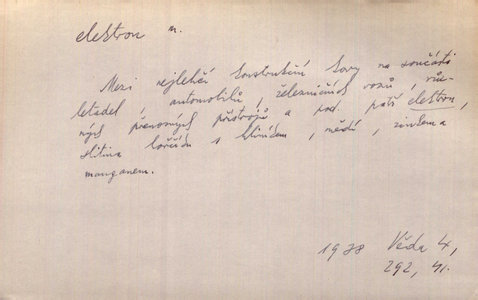 elektron m.
Mezi nejlehčí konstrukční kovy na součásti
letadel, automobilů, železničních vozů, růz-
ných přenosných přístrojů a pod. patří elektron,
slitina hořčíku s hliníkem, mědí, zinkem a
manganem.
1938 Věda 4,
292, 41.